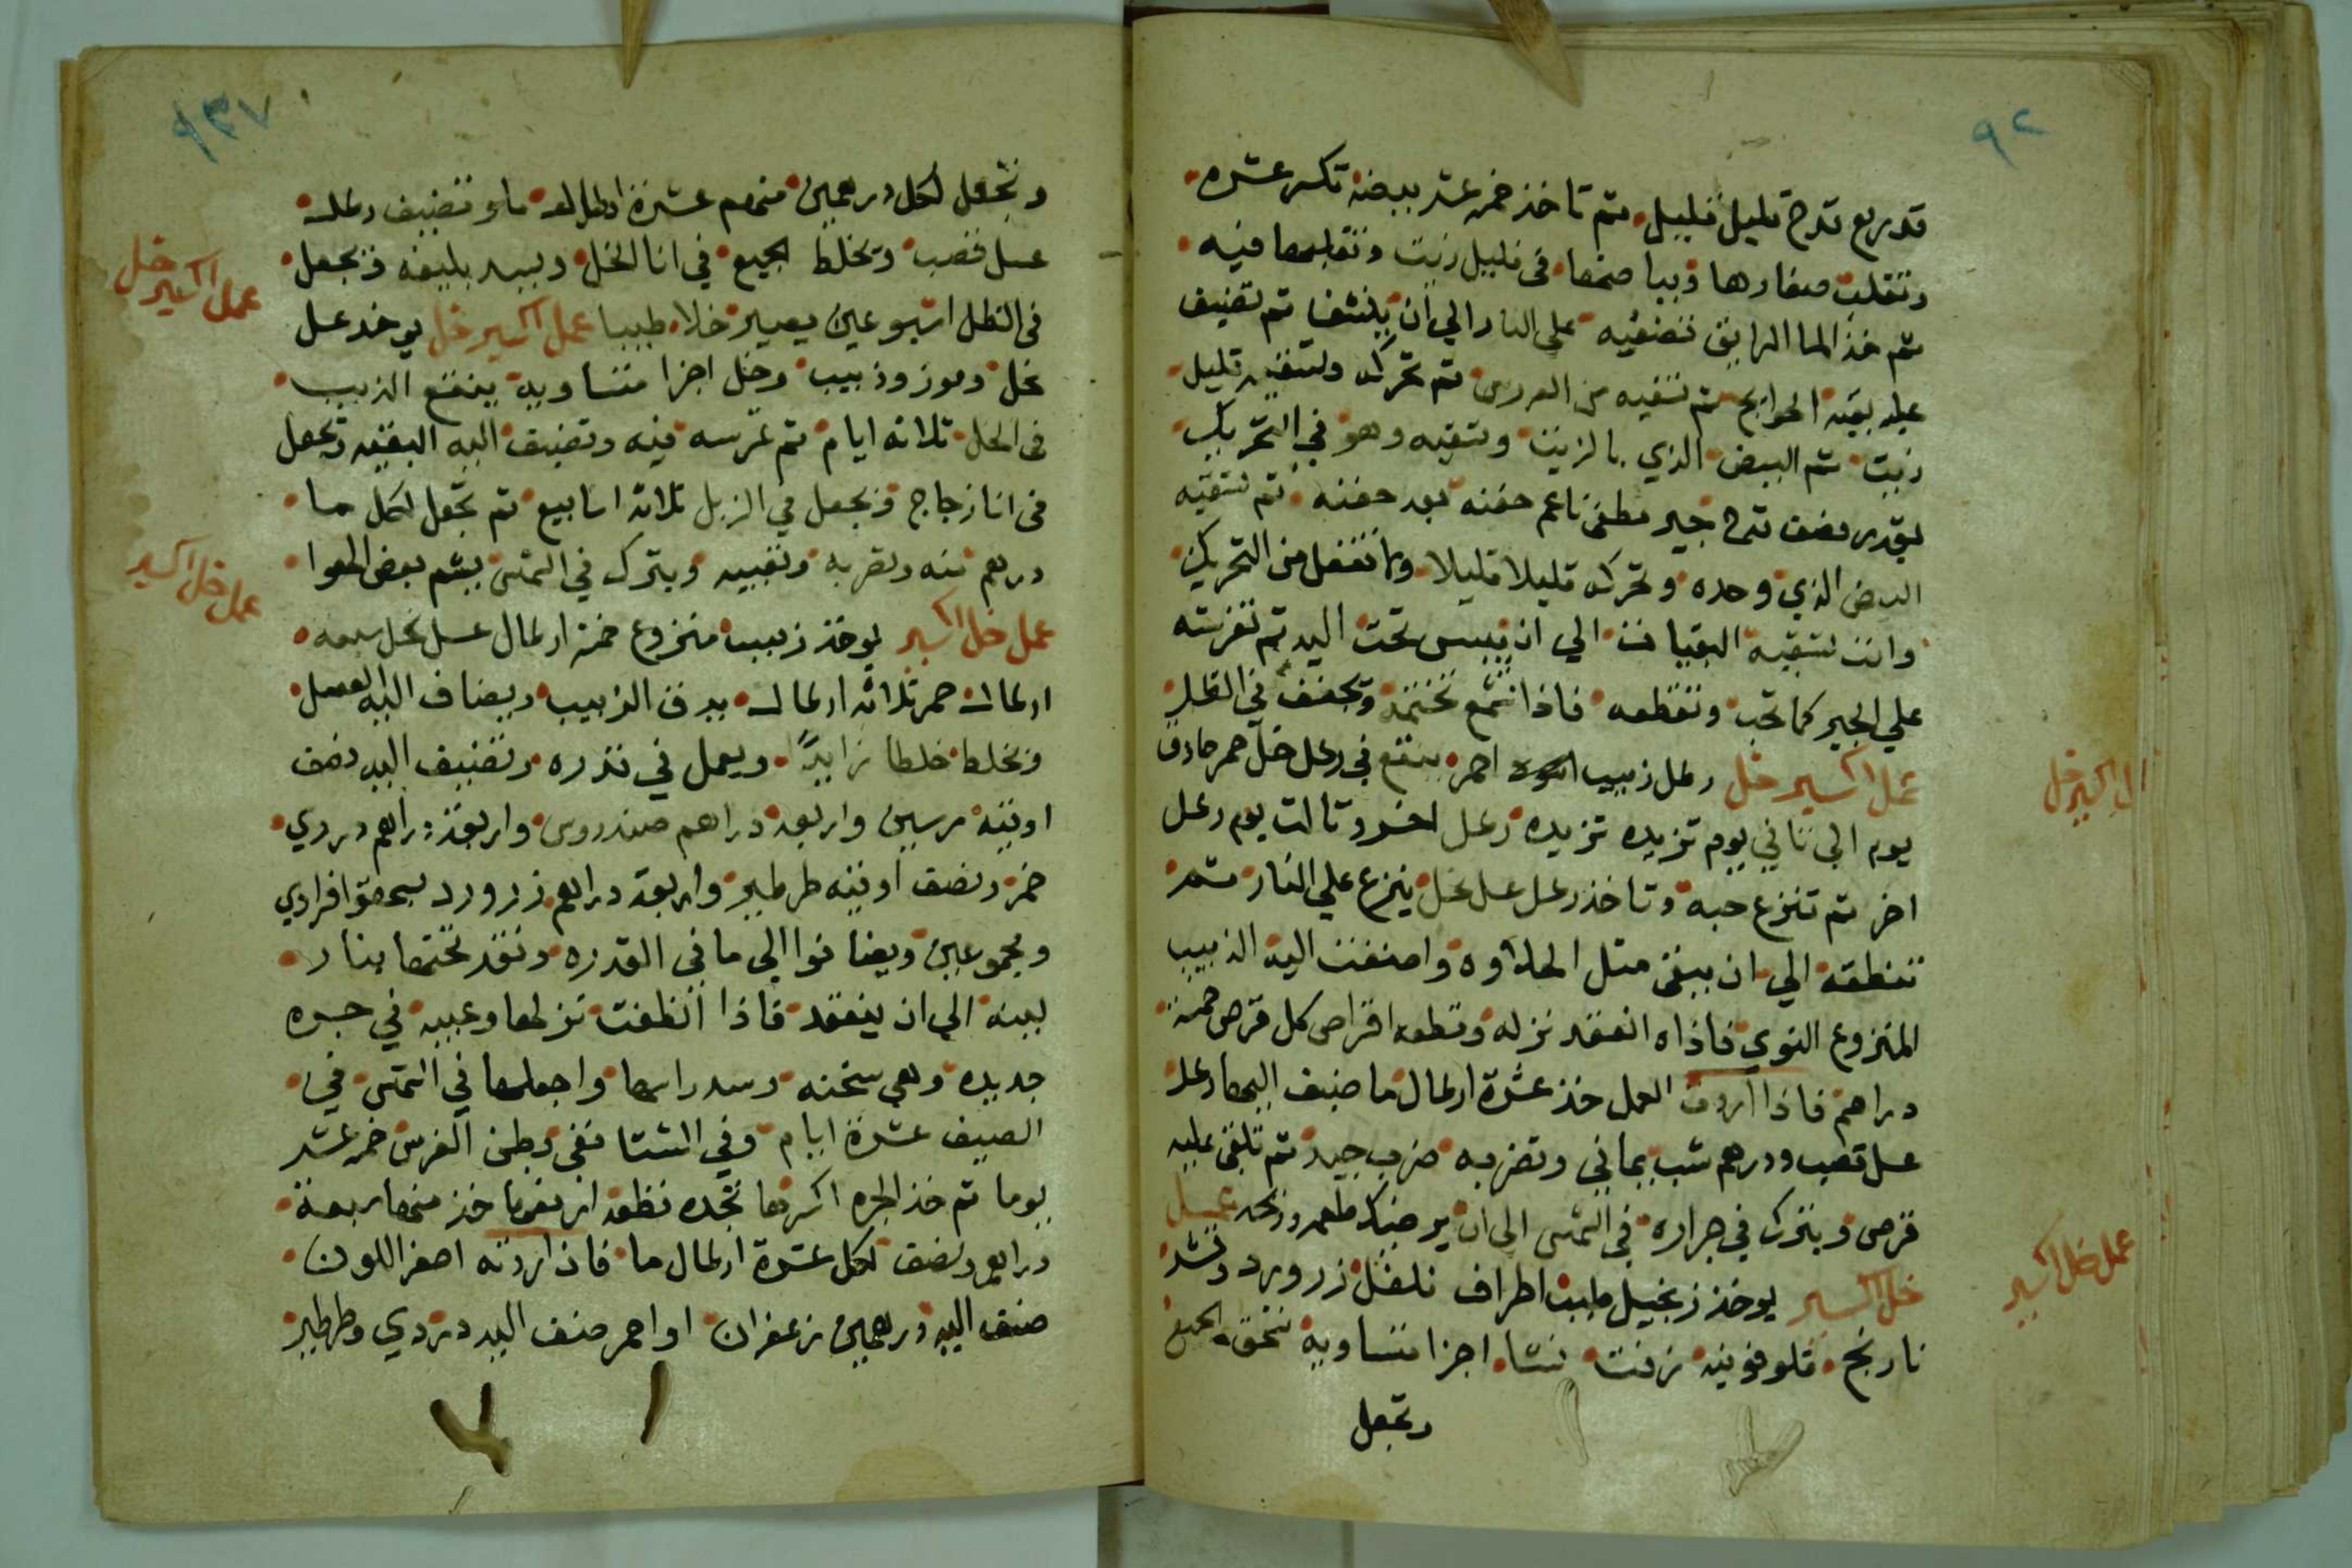 ٩٢
قدر ربع قدح قليل قليل ثم تاخذ خمسة عشر بيضة تكسر عشره
وتقلب صفارها وبياضها في قليل زيت وتقلبها فيه
ثم خذ الما الرايق تضفيه على النار الي ان ينشف ثم تضيف
عليه بقية الحوايج ثم تسقيه من العروس ثم تحركه وتسقيه قليل
زيت ثم البيض الذي بالزيت وتسقيه وهو في التحريك
بقدر نصف قدح جير مطفي ناعم حفنه بعد حفنه ثم تسقيه
البيض الذي وحده وتحركه قليلا قليلا ولا تغفل من التحريك
وانت تسقيه الي ان ييبس تحت اليد ثم تفرشه
علي الجير كما تحب وتقطعه فاذا تختمه وتجفف في الظل
عمل اكسير خل رطل زبيب اسود احمر ينقع في رطل خل خمر حادق
يوم الي تاني يوم تزيده تزيده رطل اخر وتالت يوم رطل
اخر ثم تنزع حبه وتاخذ رطل عسل نحل ينزع علي النار ثم
الي ان يبقى متل الحلاوه واضفت اليه الزبيب
المنزوع النوي فاذا انعقد نزله وقطعه اقراص كل قرص خمسة
دراهم فاذا اردت العمل خذ عشرة ارطال ما ضيف اليها رطل
عسل قصب ودرهم شب يماني وتضربه ضرب جيد ثم تلقي عليه
قرص ويترك في جراره في الشمس الي ان يرضيك طعمه وريحه عمل
خل اكسير يوخذ زنجبيل طيب اطراف فلفل زر ورد وقشر
نارنج قلوفونيه زفت نشا اجزا متساوية تسحق الجميع
وتجعل
عمل اكسير خل
عمل خل اكسير
٩٣٧
وتجعل لكل درهمين منهم عشرة ارطال ما وتضيف رطل
عسل قصب وتخلط الجميع في انا الخل ويسد بليفه وتجعل
في الظل اسبوعين يصير خلا طيبا عمل اكسير خل يوخذ عسل
نحل وموز وزبيب وخل اجزا متساوية ينقع الزبيب
في الخل تلاته ايام ثم تمرسه فيه وتضيف اليه البقيه وتجعل
في انا زجاج وتجعل في الزبل تلاتة اسابيع ثم تجعل لكل ما
درهم منه وتضربه وتغييه ويترك في الشمس يشم بعض الهوا
عمل خل اكسير يوخذ زبيب منزوع خمسة ارطال عسل نحل سبعه
ارطال خمر تلاتة ارطال يدق الزبيب ويضاف اليه العسل
وتخلط خلطا زايدا ويعمل في قدره وتضيف اليه نصف
اوقيه مرسين واربعة دراهم صندروس واربعة دراهم دردي
خمر ونصف اوقيه طرطير واربعة دراهم زر ورد يسحقوا فرادي
ومجموعين ويضافوا الي ما في القدره وتقد تحتها بنار
لينه الي ان ينعقد فاذا انظفت نزلها وعبيه في جره
جديده وهي سخنه وسد راسها واجعلها في الشمس في
الصيف عشرة ايام وفي الشتا ففي بطن الفرس خمسة عشر
يوما ثم خذ الجره اكسرها تجده خذ منها اربعة
دراهم ونصف لكل عشرة ارطال ما فاذا اردته اصفر اللون
ضيف اليه درهمين زعفران او احمر ضف اليه دردي وطرطير
عمل اكسير خل
عمل خل اكسير